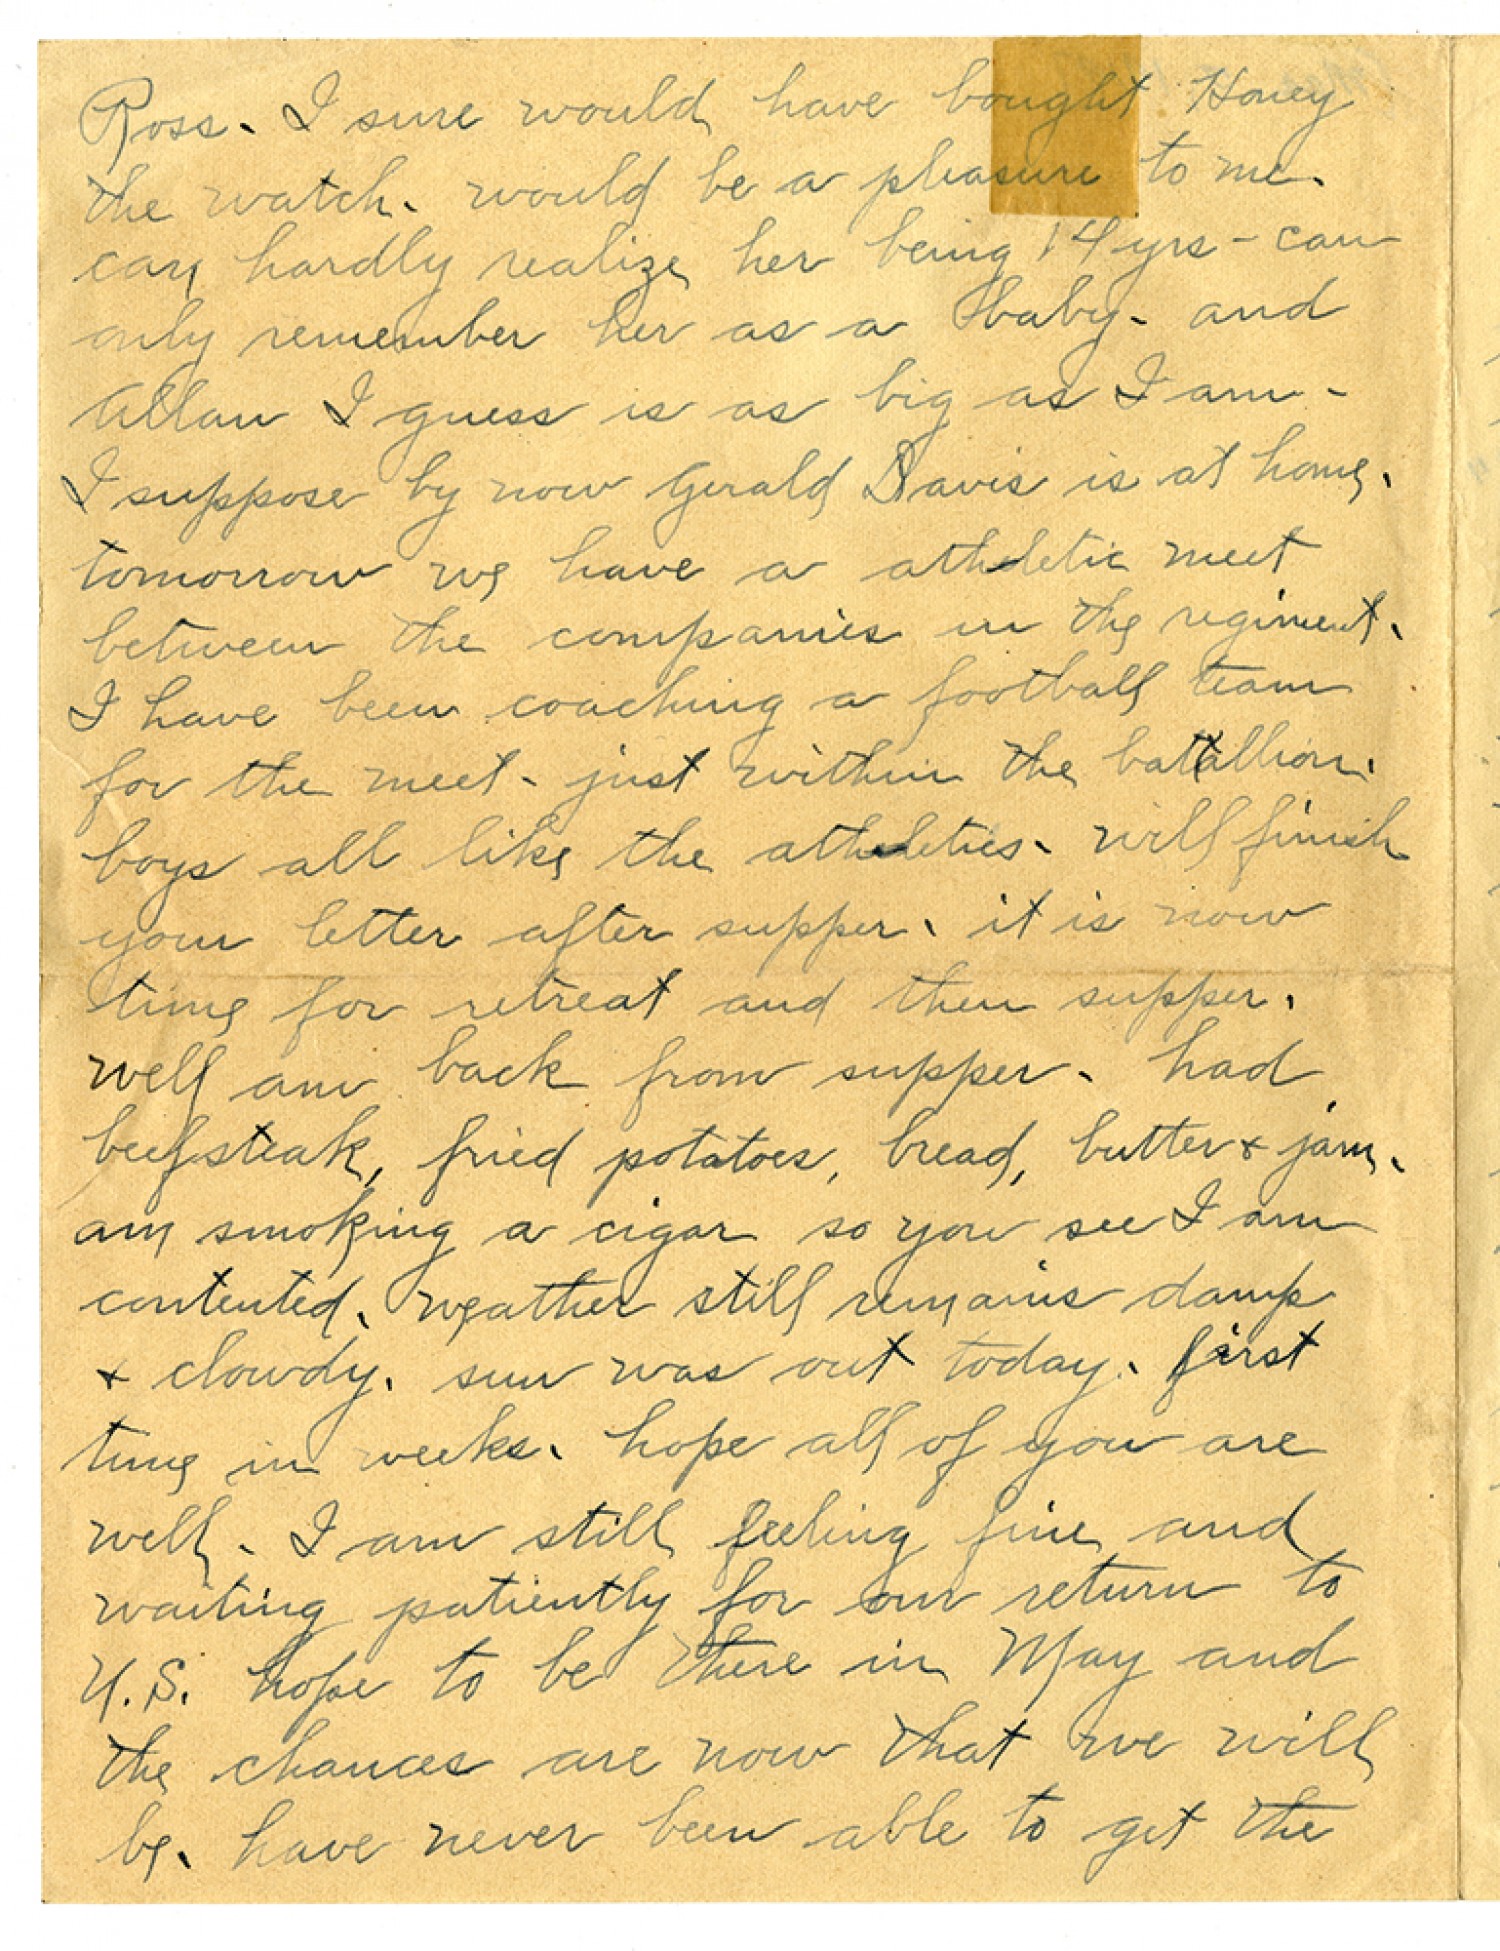 Ross. I sure would have bought Honey
the watch. would be a pleasure to me.
can hardly realize her being 14 yrs - can
only remember her as a baby. and
Allan I guess is as big as I am -
I suppose by now Gerald Davis is at home.
tomorrow we have a athletic meet
between the companies in the regiment.
I have been coaching a football team
for the meet - just within the batallion.
boys all like the athletics. will finish
your letter after supper. it is now
time for retreat and then supper.
well am back from supper. had
beefsteak, fried potatoes, bread, butter & jam.
am smoking a cigar so you see I am
contented. weather still remains damp
& clowdy. sun was out today. first
time in weeks. hope all of you are
well. I am still feeling fine and
waiting patiently for our return to
U.S. hope to be there in May and
the chances are now that we will
be. have never been able to get the